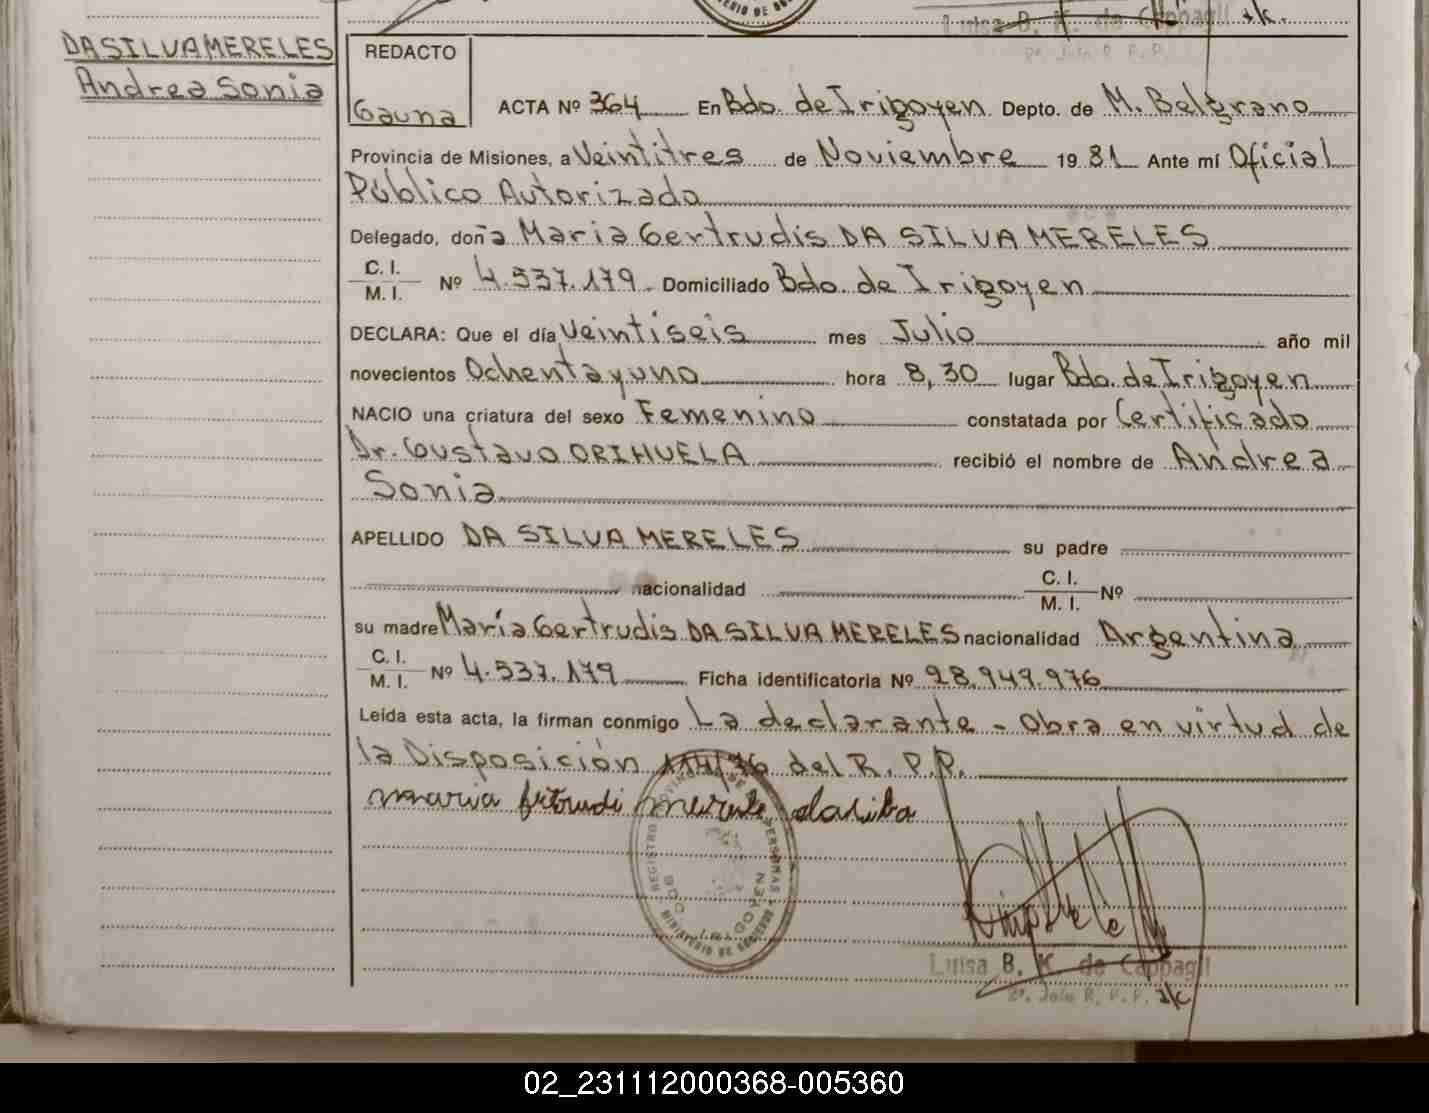 Luisa B. K. de Cappagli
DA SILVA MERELES
Andrea Sonia
REDACTO
Gauna
ACTA Nº 364 En Bdo. de Irigoyen Depto. de M. Belgrano
Provincia de Misiones, a Veintitres de Noviembre 19 81 Ante mí Oficial
Público Autorizado
Delegado, doña Maria Gertrudis DA SILVA MERELES
C. I.
M. I. Nº 4.537.179. Domiciliado Bdo. de Irigoyen
DECLARA: Que el día Veintiseis mes Julio año mil
novecientos Ochentayuno hora 8,30 lugar Bdo. de Irigoyen
NACIO una criatura del sexo Femenino constatada por Certificado
Dr. Gustavo ORIHUELA recibió el nombre de Andrea
Sonia
APELLIDO DA SILVA MERELES su padre
nacionalidad C. I.
M. I. Nº
su madre María Gertrudis DA SILVA MERELES nacionalidad Argentina
C. I.
M. I. Nº 4.537.179 Ficha identificatoria Nº 28.949.976
Leída esta acta, la firman conmigo La declarante - Obra en virtud de
la Disposición 114/76 del R. P. P.
maria
REGISTRO PROVINCIAL DE PERSONAS
BDO. IRIGOYEN
MINISTERIO DE GOBIERNO
Luisa B. K. de Cappagli
02_231112000368-005360